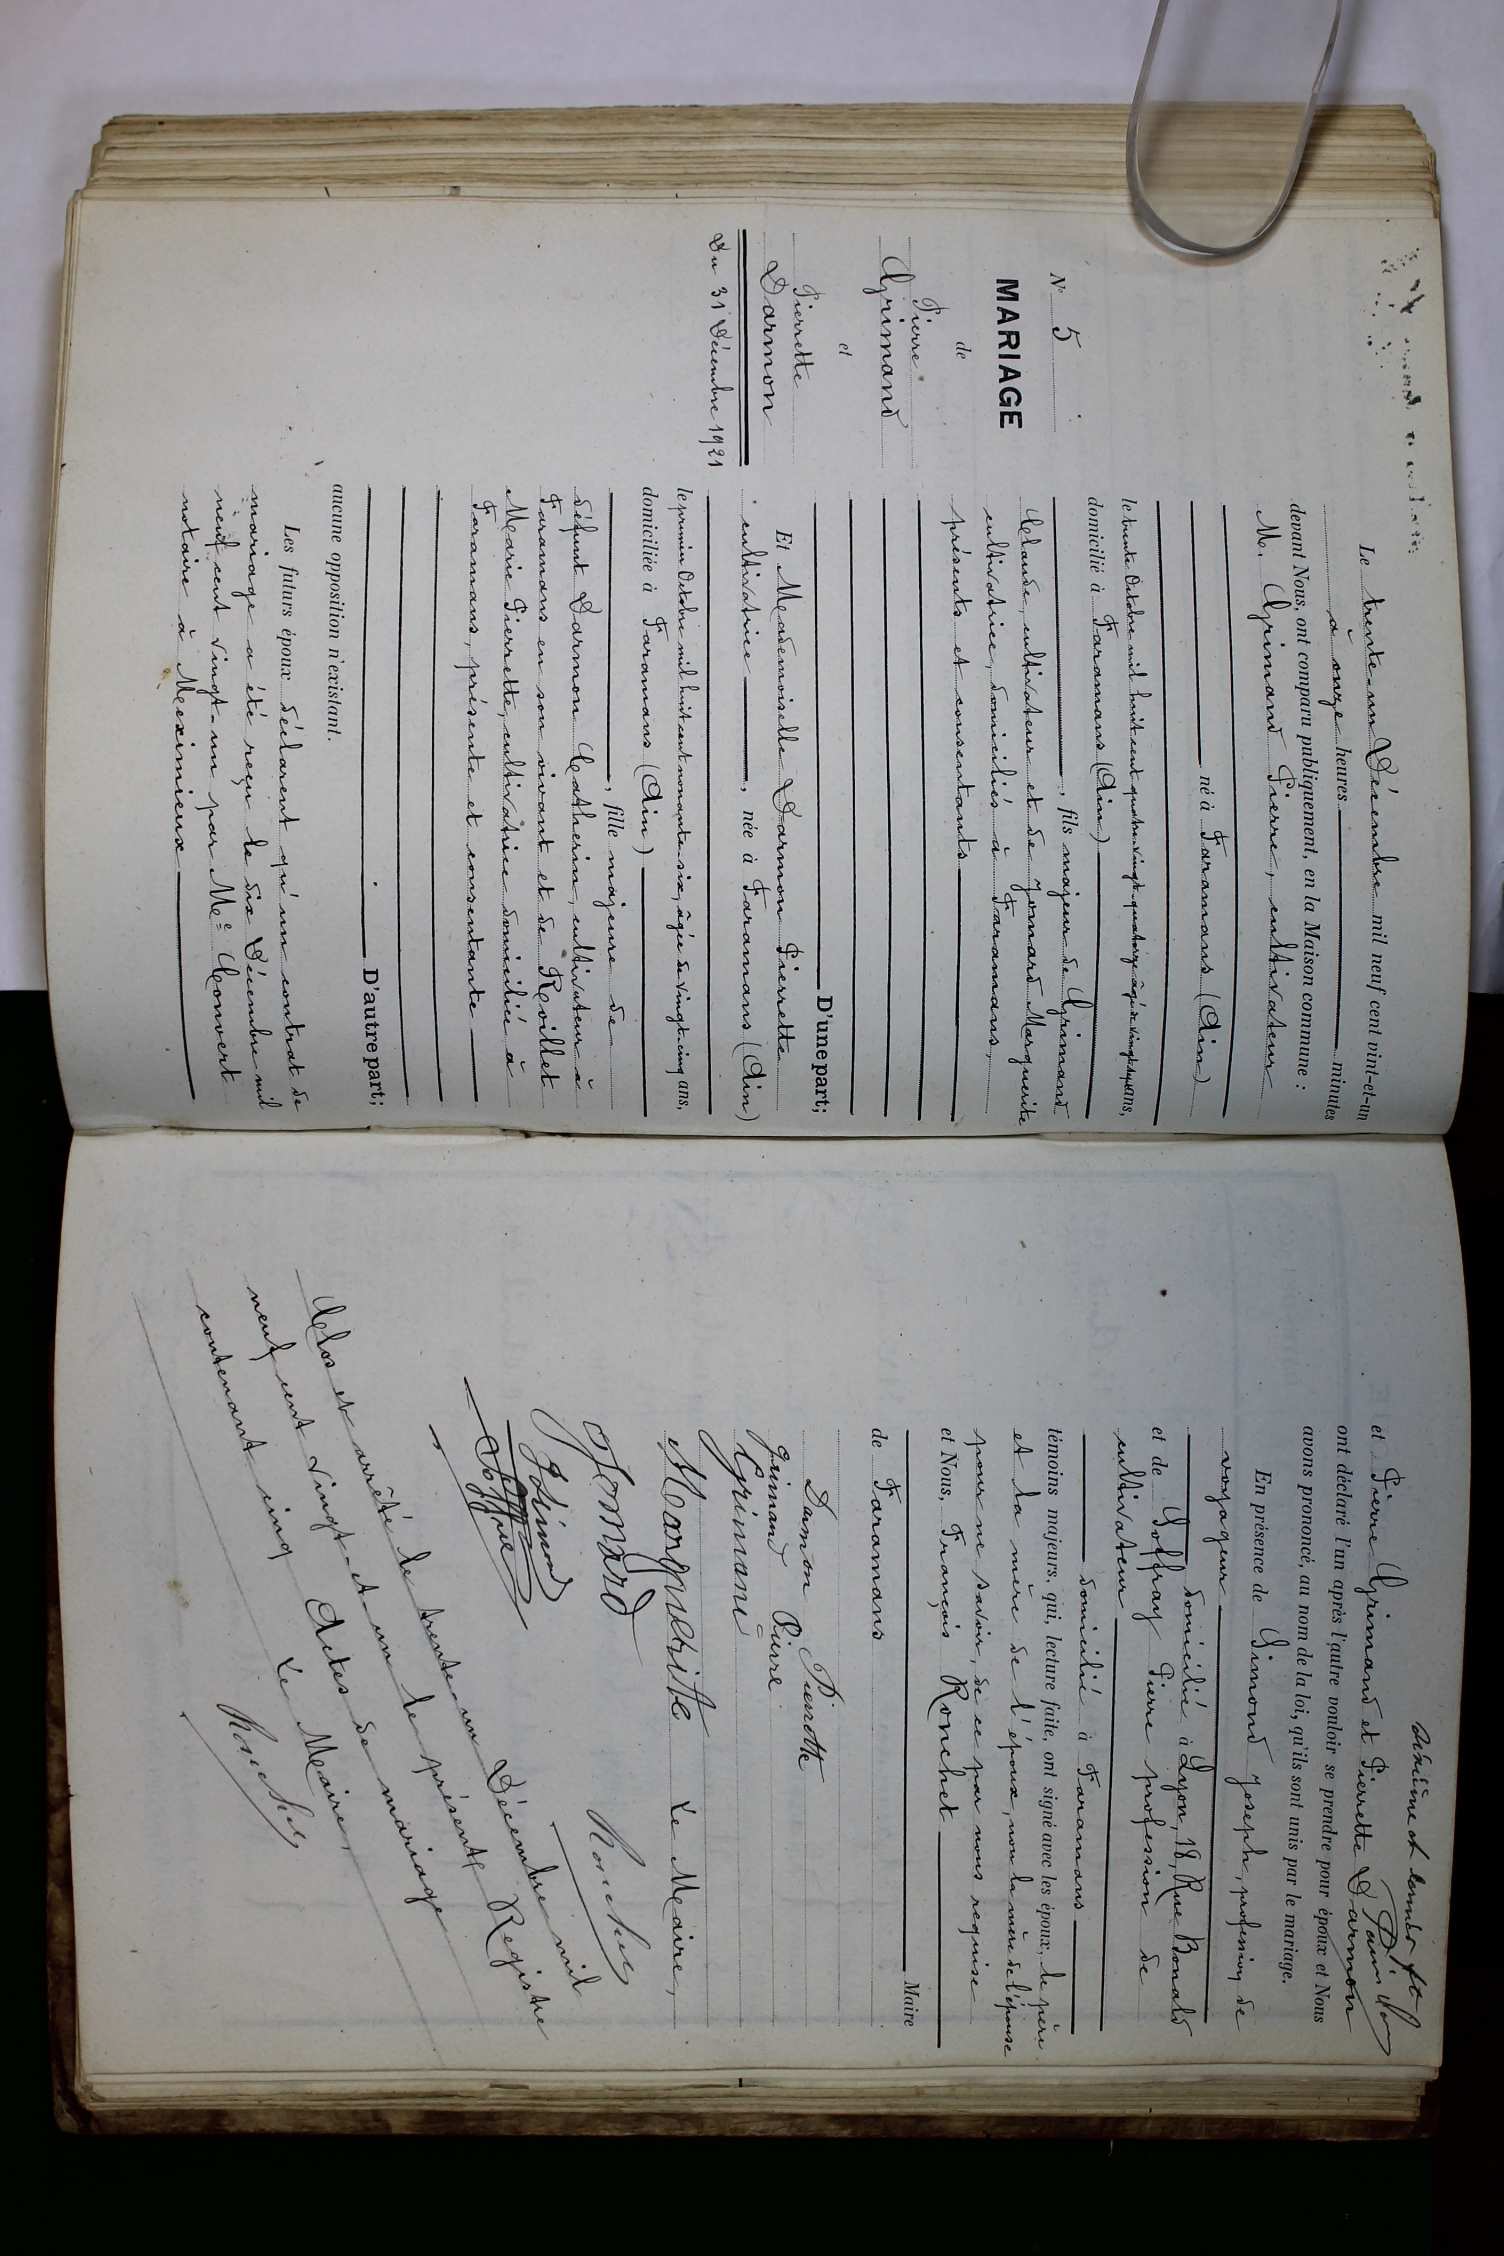 N° 5
MARIAGE
de
Pierre
Grimand
et
Pierrette
Darmon
Du 31 Décembre 1921
Le trente-un Décembre mil neuf cent vint-et-un
à onze heures minutes
devant Nous, ont comparu publiquement, en la Maison commune :
M. Grimand Pierre, cultivateur
né à Faramans (Ain)
le trente Octobre mil huit cent quatre-vingt-quatorze âgé de vingt-sept ans,
domicilié à Faramans (Ain)
, fils majeur de Grimand
Claude, cultivateur et de Jomard Marguerite
cultivatrice, domiciliés à Faramans,
présents et consentants
D'une part;
Et Mademoiselle Darmon Pierrette
cultivatrice, née à Faramans (Ain)
le premier Octobre mil huit cent nonante-six, âgée de vingt-cinq ans,
domiciliée à Faramans (Ain)
, fille majeure de
défunt Darmon Catherin, cultivateur à
Faramans en son vivant et de Roillet
Marie Pierrette, cultivatrice domiciliée à
Faramans, présente et consentante
D'autre part;
aucune opposition n'existant.
Les futurs époux déclarent qu'un contrat de
mariage a été reçu le dix Décembre mil
neuf cent vingt-un par Me Convert
notaire à Meximieux
sixième et dernier
et Pierre Grimand et Pierrette Darmon
ont déclaré l'un après l'autre vouloir se prendre pour époux et Nous
avons prononcé, au nom de la loi, qu'ils sont unis par le mariage.
En présence de Simond Joseph, profession de
voyageur
domicilié à Lyon, 18, Rue Bonald
et de Goffray Pierre profession de
cultivateur
domicilié à Faramans
témoins majeurs, qui, lecture faite, ont signé avec les époux, le père
et la mère de l'époux, non la mère de l'épouse
pour ne savoir, de ce par nous requise
et Nous, François Ronchet
Maire
de Faramans
Darmon Pierrette
Grimand Pierre
Grimand
Marguerite Le Maire,
Jomard
Ronchet
J Simond
Clos et arrêté le trente-un Décembre mil
neuf cent vingt-et-un le présent Registre
contenant cinq Actes de mariage
Le Maire,
Ronchet